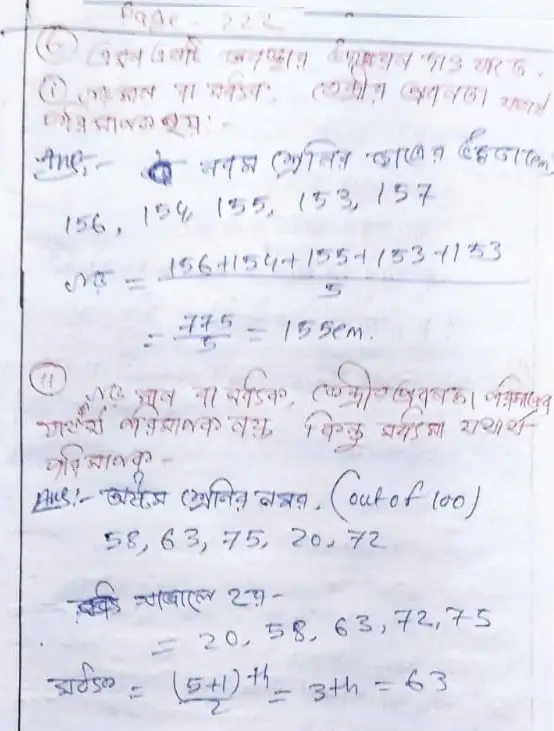 Page - 222
6 এমন একটি অবস্থার উদাহরণ দাও যাতে
① গড় মান বা গড়িক, কেন্দ্রীয় প্রবণতা যথার্থ
পরিমাপক হয়:-
Ans:- নবম শ্রেণির ছাত্রের উচ্চতা (cm)
156, 154, 155, 153, 157
গড় = 156+154+155+153+153 / 5
= 775/5 = 155cm.
⑪ গড় মান বা গড়িক, কেন্দ্রীয় প্রবণতা
যথার্থ পরিমাপক নয় কিন্তু মধ্যমা যথার্থ
পরিমাপক -
Ans:- অষ্টম শ্রেণির নম্বর, (out of 100)
58, 63, 75, 20, 72
সাজালে হয়-
= 20, 58, 63, 72, 75
= (5+1)/2 th = 3th = 63